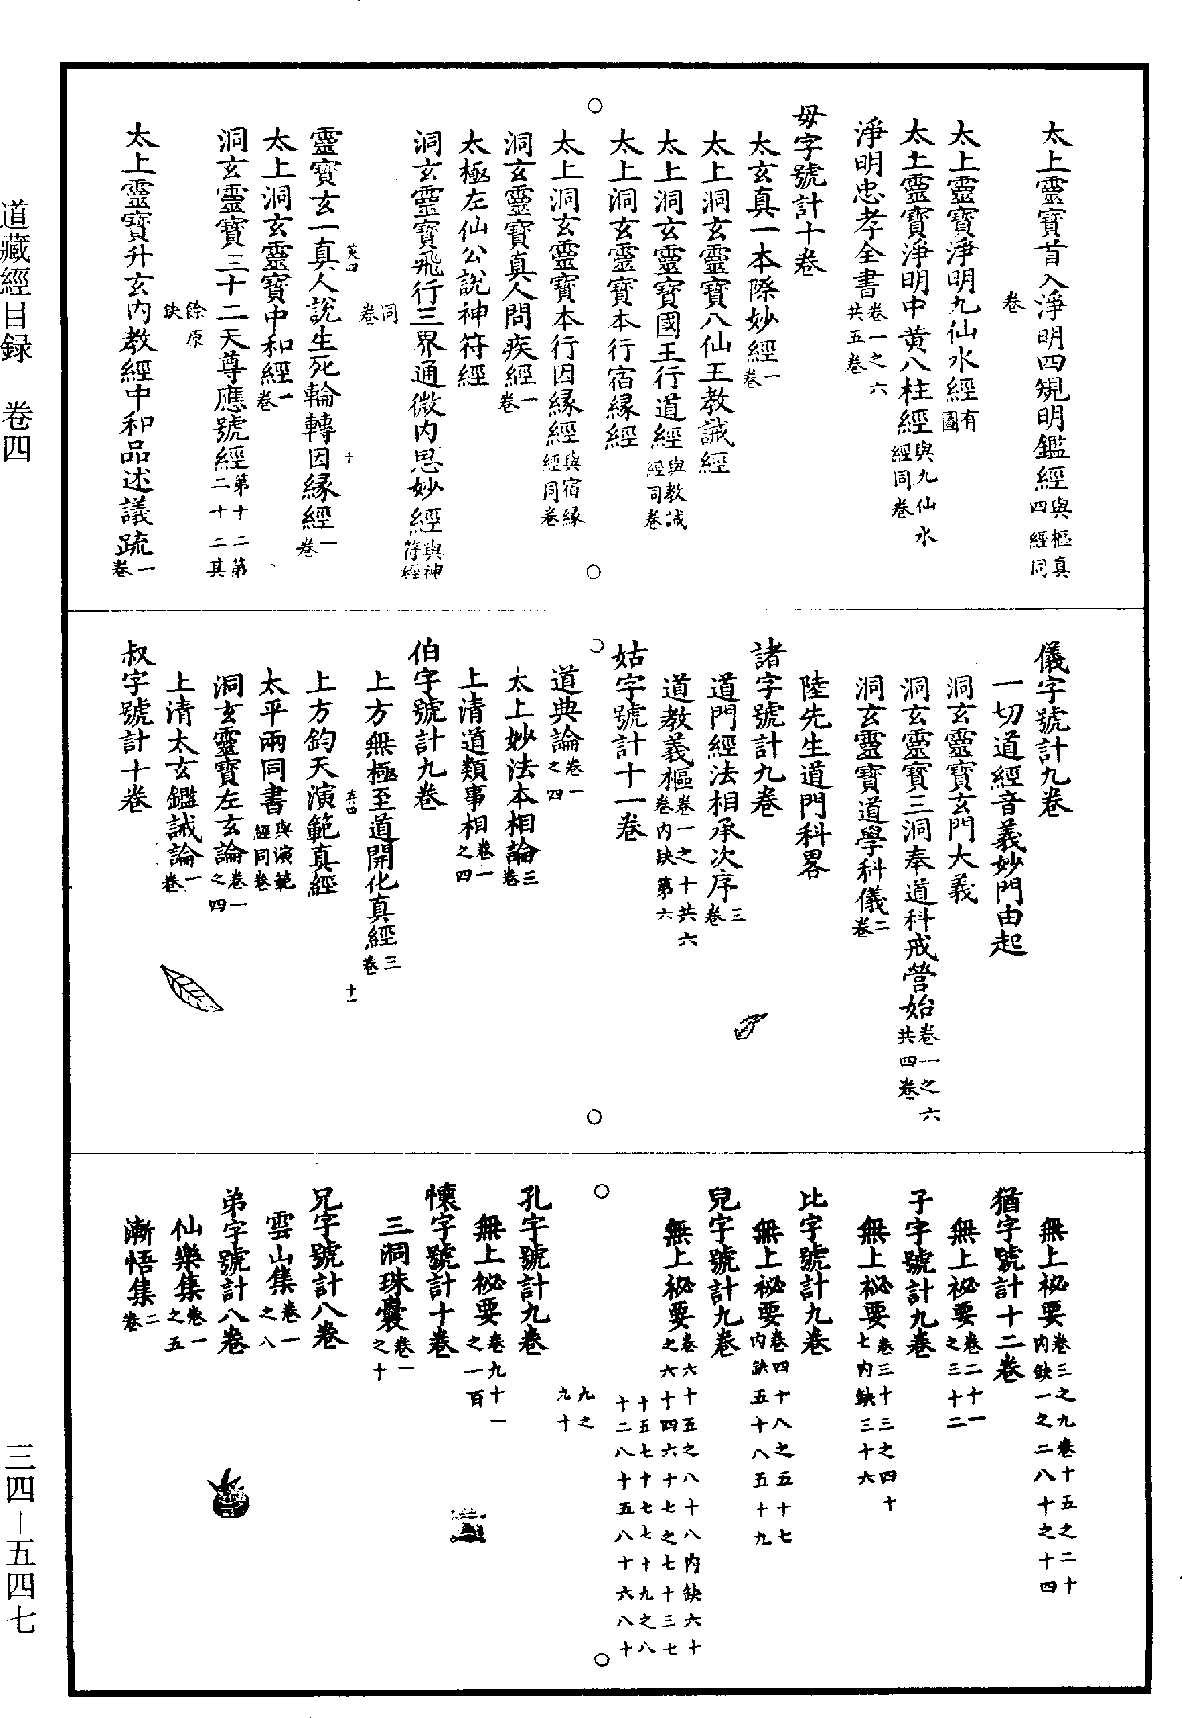 太上靈寶首入淨明四規明鑑經與樞真四經同
卷
太上靈寶淨明九仙水經有圖
太土靈寶淨明中黃八柱經與九仙水經同卷
淨明忠孝全書卷一之六共五卷
毋字號計十卷
太玄真一本際妙經一卷
太上洞玄靈寶八仙王教誡經
太上洞玄靈寶國王行道經與教誡經司卷
太上洞玄靈寶本行宿緣經
太上洞玄靈寶本行因緣經與宿緣經同卷
洞玄靈寶真人問疾經一卷
太極左仙公說神符經
洞玄靈寶飛行三界通微內思妙經與神符經
同卷
英四 十
靈寶玄一真人說生死輪轉因緣經一卷
太上洞玄靈寶中和經一卷
洞玄靈寶三十二天尊應號經第十二第二十二其
餘原缺
太上靈寶升玄內教經中和品述議疏一卷
儀字號計九卷
一切道經音義妙門由起
洞玄靈寶玄門大義
洞玄靈寶三洞奉道科戒營始卷一之六共四卷
洞玄靈寶道學科儀二卷
陸先生道門科畧
諸字號計九卷
道門經法相承次序三卷
道教義樞卷一之十共六卷內缺第六
姑字號計十一卷
道典論卷一之四
太上妙法本相論三卷
上清道類事相卷一之四
伯字號計九卷
上方無極至道開化真經三卷
五四 十一
上方鈞天演範真經
太平兩同書與演範經同卷
洞玄靈寶左玄論卷一之四
上清太玄鑑誡論一卷
叔字號計十卷
無上祕要卷三之九卷十五之二十內缺一之二八十之十四
猶字號計十二卷
無上祕要卷二十一之三十二
子字號計九卷
無上祕要卷三十三之四十七內缺三十六
比字號計九卷
無上祕要卷四十八之五十七內缺五十八五十九
兒字號計九卷
無上祕要卷六十五之八十八內缺六十之六十四六十七之七十三七
十五七十七七十九之八十二八十五八十六八十
九之九十
孔字號計九卷
無上祕要卷九十一之一百
懷字號計十卷
三洞珠囊卷一之十
兄字號計八卷
雲山集卷一之八
弟字號計八卷
仙樂集卷一之五
漸悟集二卷
道藏經目録 卷四
三四—五四七